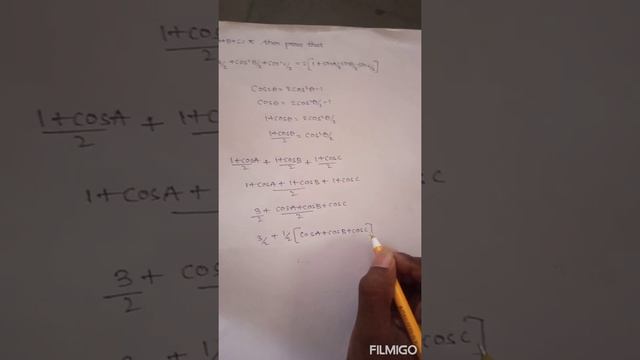 A+B+C=π then prove that
A/2 + cos²B/2 + cos²C/2 = 2[1+sinA/2 sinB/2 sinC/2]
Cos2θ = 2cos²θ-1
Cosθ = 2cos²θ/2-1
1+cosθ = 2cos²θ/2
1+cosθ/2 = cos²θ/2
1+cosA/2 + 1+cosB/2 + 1+cosC/2
1+cosA+1+cosB+1+cosC/2
3/2 + cosA+cosB+cosC/2
3/2 + 1/2[cosA+cosB+cosC]
FILMIGO